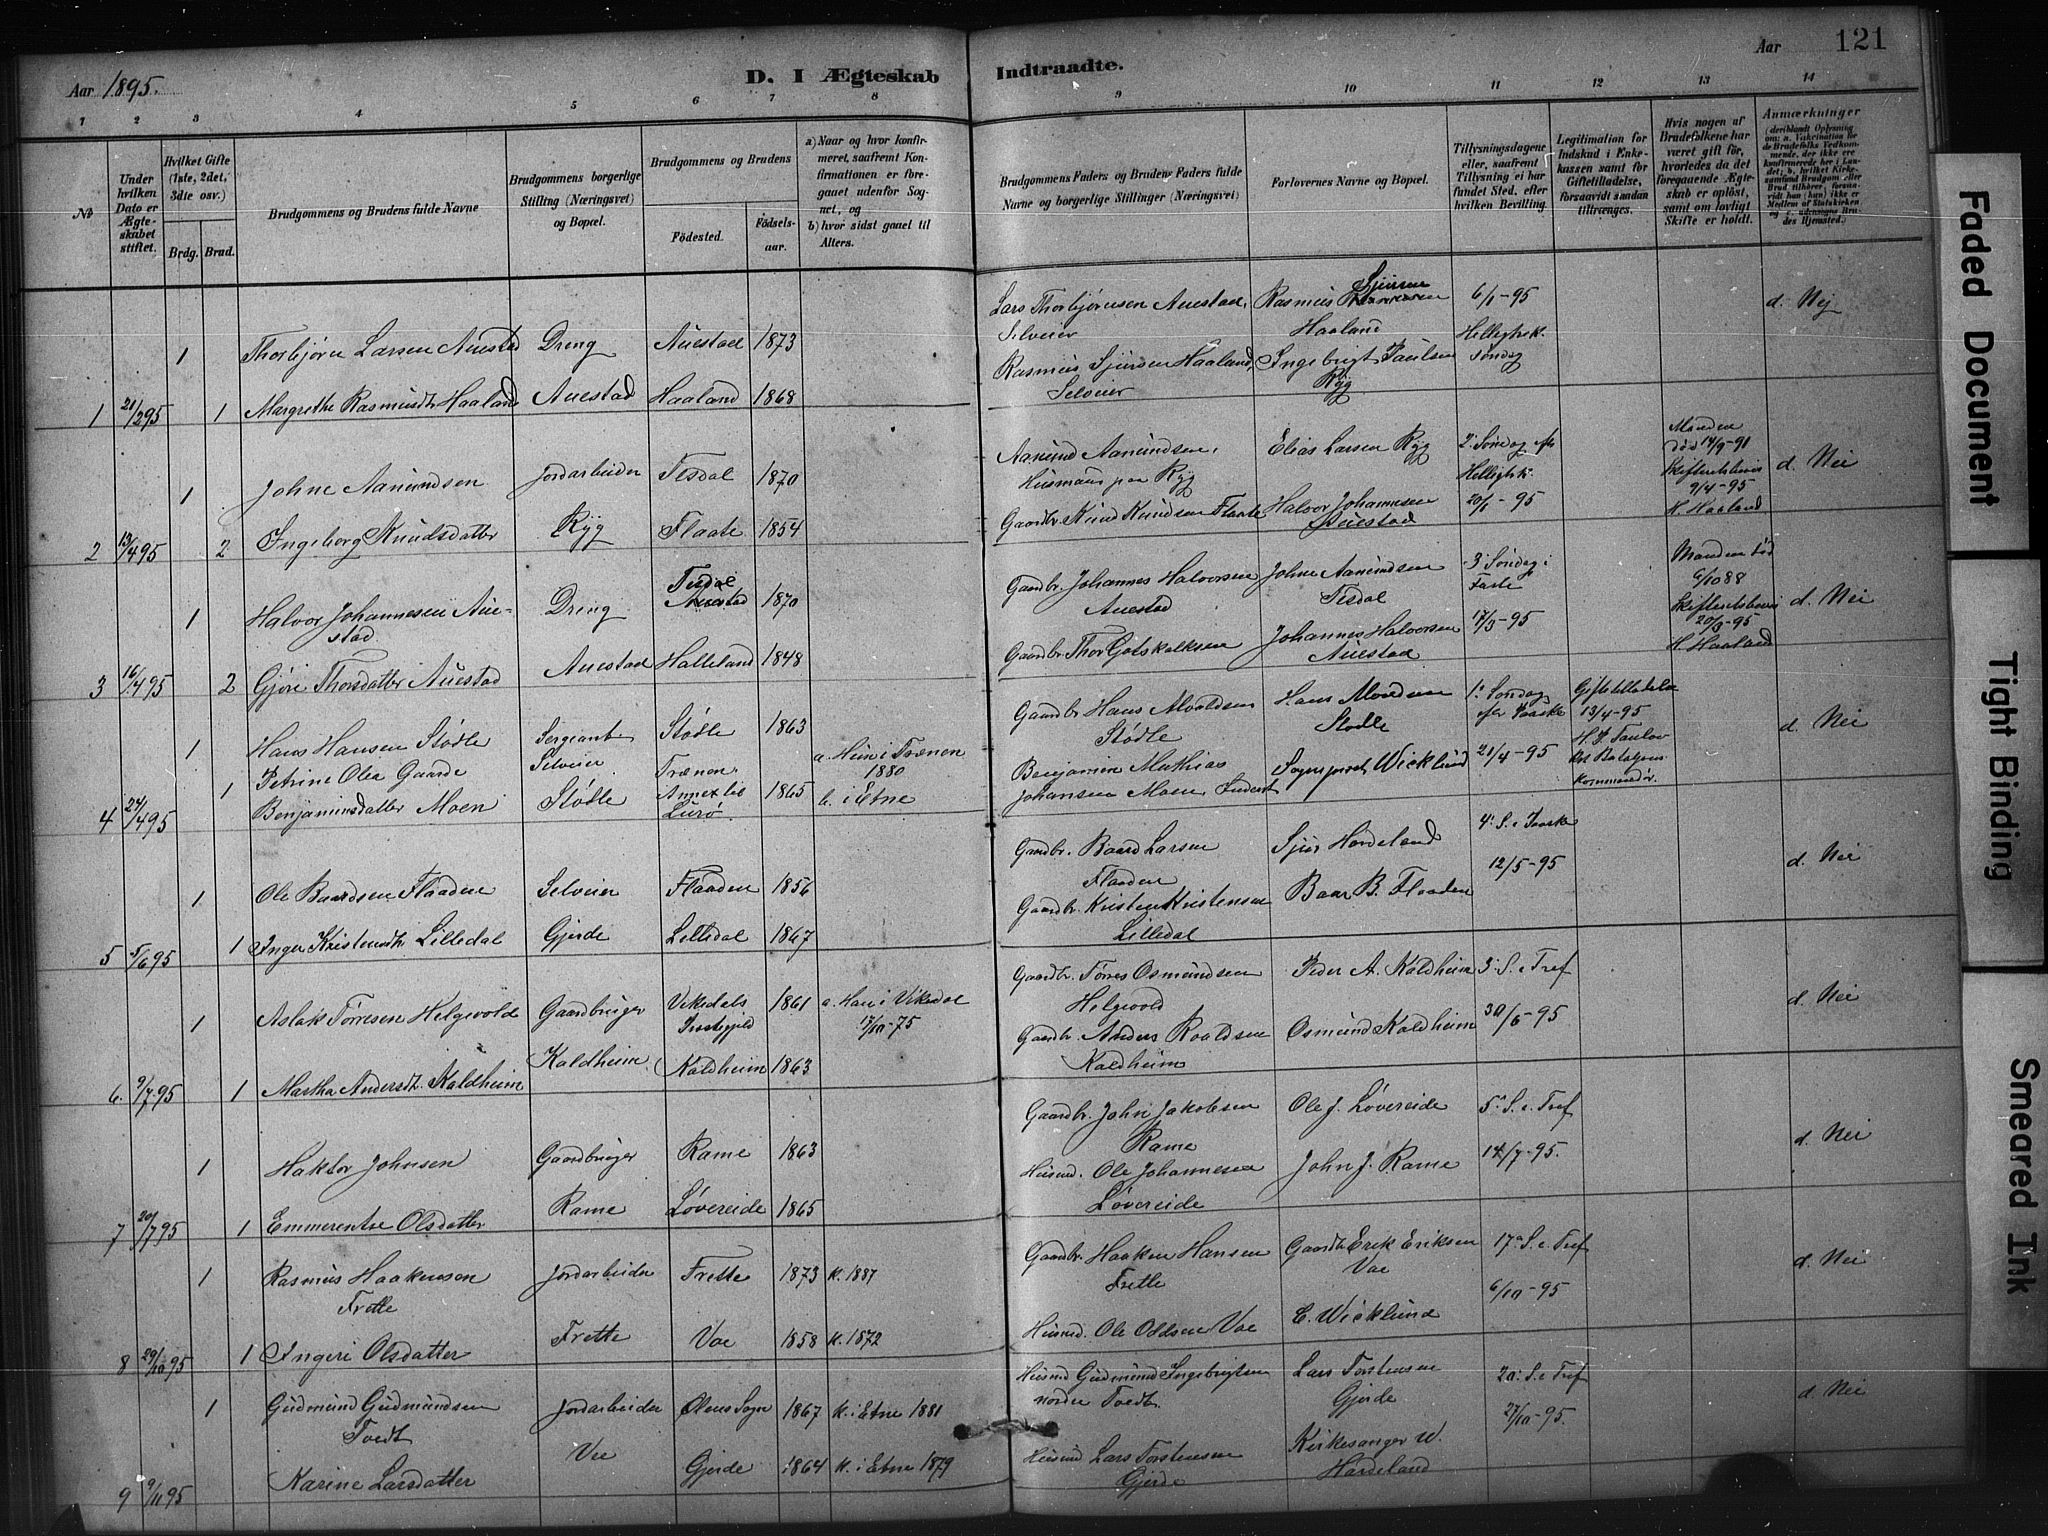 Aar 1895.
D. I Ægteskab
Indtraadte.
Aar
121
1
2
3
4
5
6
7
8
9
10
11
12
13
14
No
Under hvilken Dato er Ægteskabet stiftet.
Hvilket Gifte (1ste, 2det, 3die osv.)
Brdg.
Brud.
Brudgommens og Brudens fulde Navne
Brudgommens borgerlige Stilling (Næringsvei) og Bopæl.
Brudgommens og Brudens
Födested.
Födselsaar.
a) Naar og hvor konfirmeret, saafremt Konfirmationen er foregaaet udenfor Sognet, og
b) hvor sidst gaaet til Alters.
Brudgommens Faders og Brudens Faders fulde Navne og borgerlige Stillinger (Næringsvei)
Forlovernes Navne og Bopæl.
Tillysningsdagene eller, saafremt Tillysning ei har fundet Sted, efter hvilken Bevilling.
Legitimation for Indskud i Enkekassen samt for Giftetilladelse, forsaavidt saadan tiltrænges.
Hvis nogen af Brudefolkene har været gift för, hvorledes da det foregaaende Ægteskab er oplöst, samt om lovligt Skifte er holdt.
Anmærkninger
1 21/2 95
1
Thorbjörn Larsen Auestad
Dreng
Auestad
1873
1
Margrethe Rasmusdtr Haaland
Auestad
Haaland
1868
Lars Thorbjörnsen Auestad,
Selveier
Rasmus Sjursen Haaland,
Selveier
Rasmus Sjursen
Haaland
Ingebrigt Paulsen
Ryg
6/1-95
Helligtrek.
söndag
d. Nej
2 13/4 95
1
Johne Aamundsen
Jordarbeider
Tesdal
1870
2
Ingeborg Knudsdatter
Ryg
Flaate
1854
Aamund Aamundsen,
Husmann paa Ryg
Gaardbr. Knud Knudsen Flaate
Elias Larsen Ryg
Halvor Johannesen
Auestad
2. Söndag
Helligtrk.
20/1-95
Manden
död 14/9-91
Skifteretsbevis
9/4-95
H. Haaland
d. Nei
3 16/4 95
1
Halvor Johannesen Auestad
Dreng
Tesdal
Auestad
1870
2
Gjöri Thorsdatter Auestad
Auestad
Halleland
1848
Gaardbr. Johannes Halvorsen
Auestad
Gaardbr Thor Gotskalksen
Johne Aamundsen
Tesdal
Johannes Halvorsen
Auestad
3. Söndag i
Faste
17/3-95
Manden död
6/10 88
Skifteretsbevis
20/3-95
H. Haaland
d. Nei
4 24/4 95
1
Hans Hansen Stödle
Sergeant
Selveier
Stödle
1863
1
Petrine Olea Gaarde
Benjaminsdatter Moen
Stödle
Trænen
Annex til
Lurö
1865
a. Hun i Trænen
1880
b. i Etne
Gaardbr Hans Alvaldsen
Stödle
Benjamin Mathias
Johansen Moen,
Stödle
Sognepræst Wicklund
1. Söndag
efter Paaske
21/4-95
Giftetilladelse
13/4-95
d. Nei
5 5/6 95
1
Ole Baardsen Flaaden
Selveier
Flaaden
1856
1
Inger Kristensdtr Lilledal
Gjerde
Lilledal
1867
Gaardbr. Baard Larsen
Flaaden
Gaardbr. Kristen Kristensen
Lilledal
Sjur Hardeland
Baar B. Flaaden
4. S. e Paaske
12/5-95
d. Nei
6. 9/7 95
1
Aslak Törresen Helgevold
Gaardbruger
Vikedals
Prestegjeld
1861
a. Han i Vikedal
17/10-75
1
Martha Andersdt. Kaldheim
Kaldheim
Kaldheim
1863
Gaardbr. Törres Osmundsen
Helgevold
Gaardbr. Anders Roaldsen
Kaldheim
Peder A. Kaldheim
Osmund Kaldheim
3. S. e Tref
30/6-95
d. Nei
7 20/7 95
1
Haktor Johnsen
Gaardbruger
Rame
1863
1
Emmerentse Olsdatter
Rame
Lövereide
1865
Gaardbr. John Jakobsen
Rame
Husmd. Ole Johannesen
Lövereide
Ole J. Lövereide
John J. Rame
5. S. e. Tref
14/7-95.
d. Nei
8 29/10 95
1
Rasmus Haakensen
Frette
Jordarbeider
Frette
1873
K. 1887
1
Ingeri Olsdatter
Frette
Vae
1858
K. 1872
Gaardbr. Haaken Hansen
Frette
Husmd. Ole Oddsen Vae
Gaardbr Erik Eriksen
Vae
E. Wicklund
17. S. e. Tref
6/10-95
d. Nei
9 9/11 95
1
Gudmund Gudmundsen
Tvedt
Jordarbeider
Ölens Sogn
1867
K. i Etne 1881
Karine Larsdatter
Vae
Gjerde
1864
K. i Etne 1879
Husmd Gudmund Ingebrigtsen
nordre Tvedt
Husmd Lars Torstensen
Gjerde
Lars Torstensen
Gjerde
Kirkesanger W.
Hardeland
20. S. e Tref
27/10-95.
d. Nei
Faded Document
Tight Binding
Smeared Ink